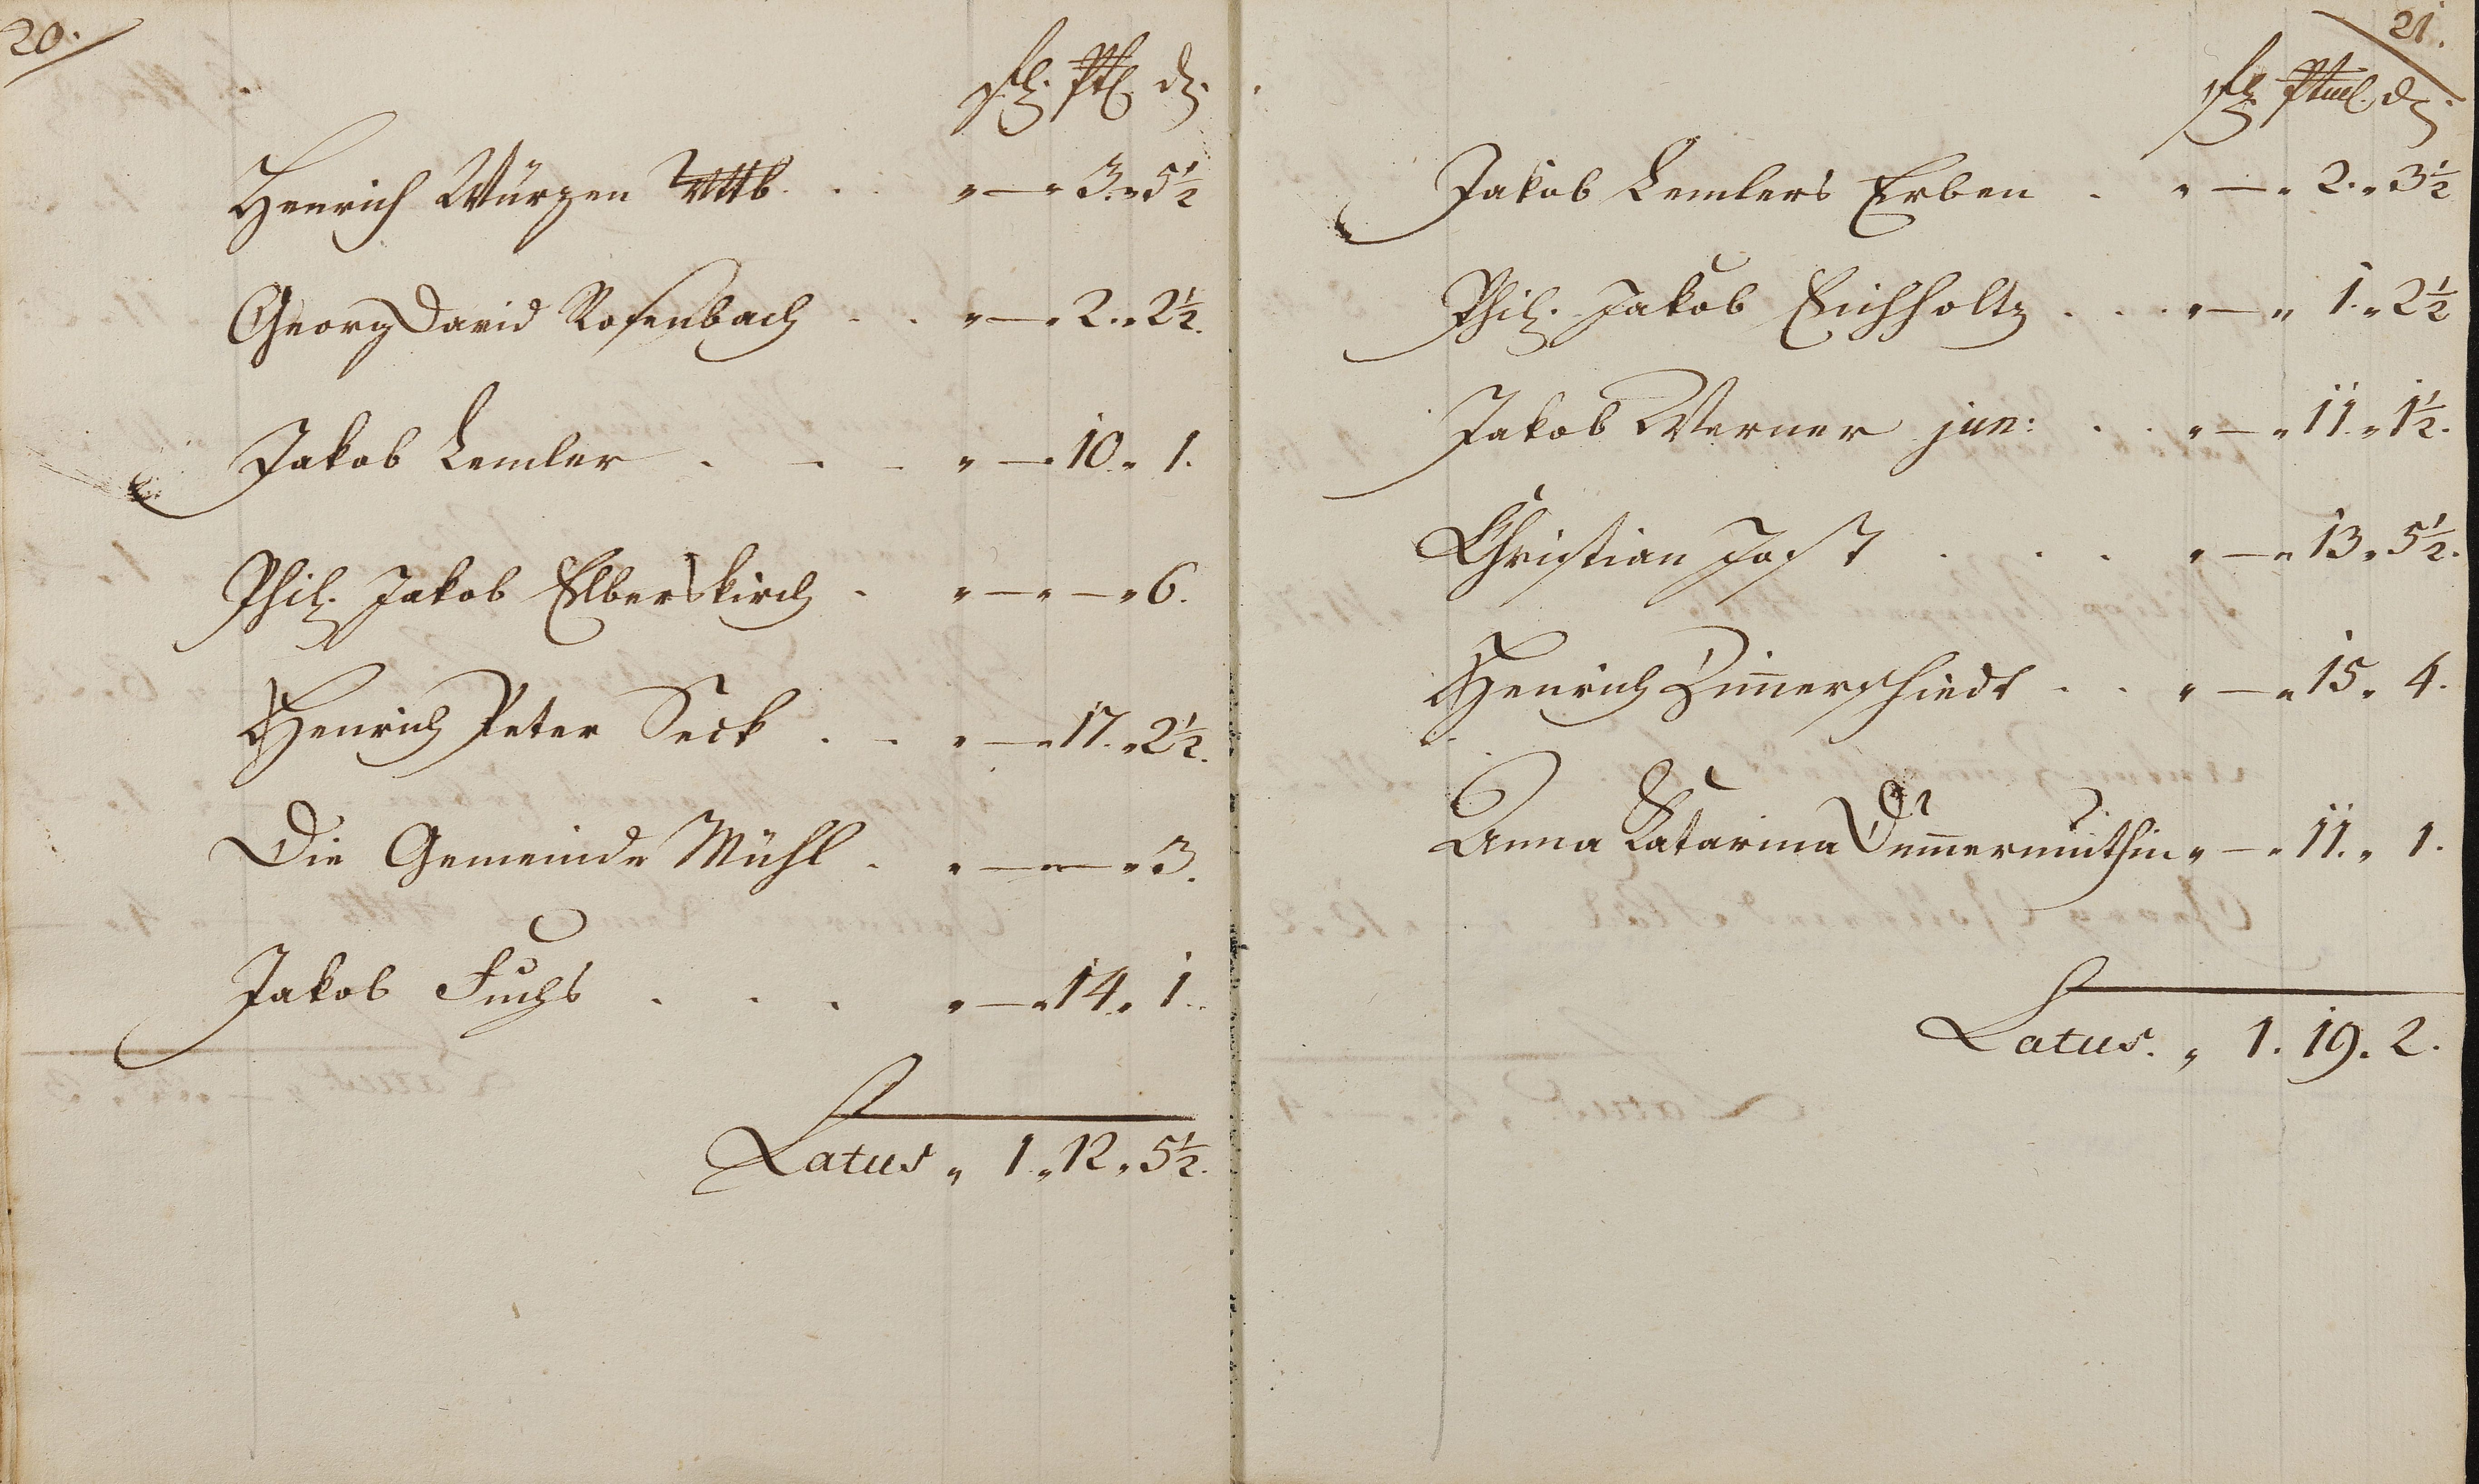 20.
fl. Ptl. d.
Henrich Würzen Wttb. . . „ — „ 3. „ 5½
Georg David Rosenbach . . „ — „ 2. „ 2½.
Jakob Lemler . . . „ — „ 10. „ 1.
Phil. Jakob Elberskirch . „ — „ — „ 6.
Henrich Peter Seck . . „ — „ 17. „ 2½.
Die Gemeinde Mühl . „ — „ — „ 3.
Jakob Fuchs . . . „ — „ 14. „ 1.
Latus „ 1. „ 12. „ 5½.
21.
fl. d.
Jakob Lemlers Erben . „ — „ 2. „ 3½
Phil. Jakob Eichholtz . . . „ — „ 1. „ 2½
Jakob Werner jun: . . „ — „ 11. „ 1½.
Christian Jost . . . „ — „ 13. „ 5½.
Henrich Zim̅erschiedt . . „ — „ 15. „ 4.
Anna Katarina „ — „ 11. „ 1.
Latus. „ 1. 19. 2.